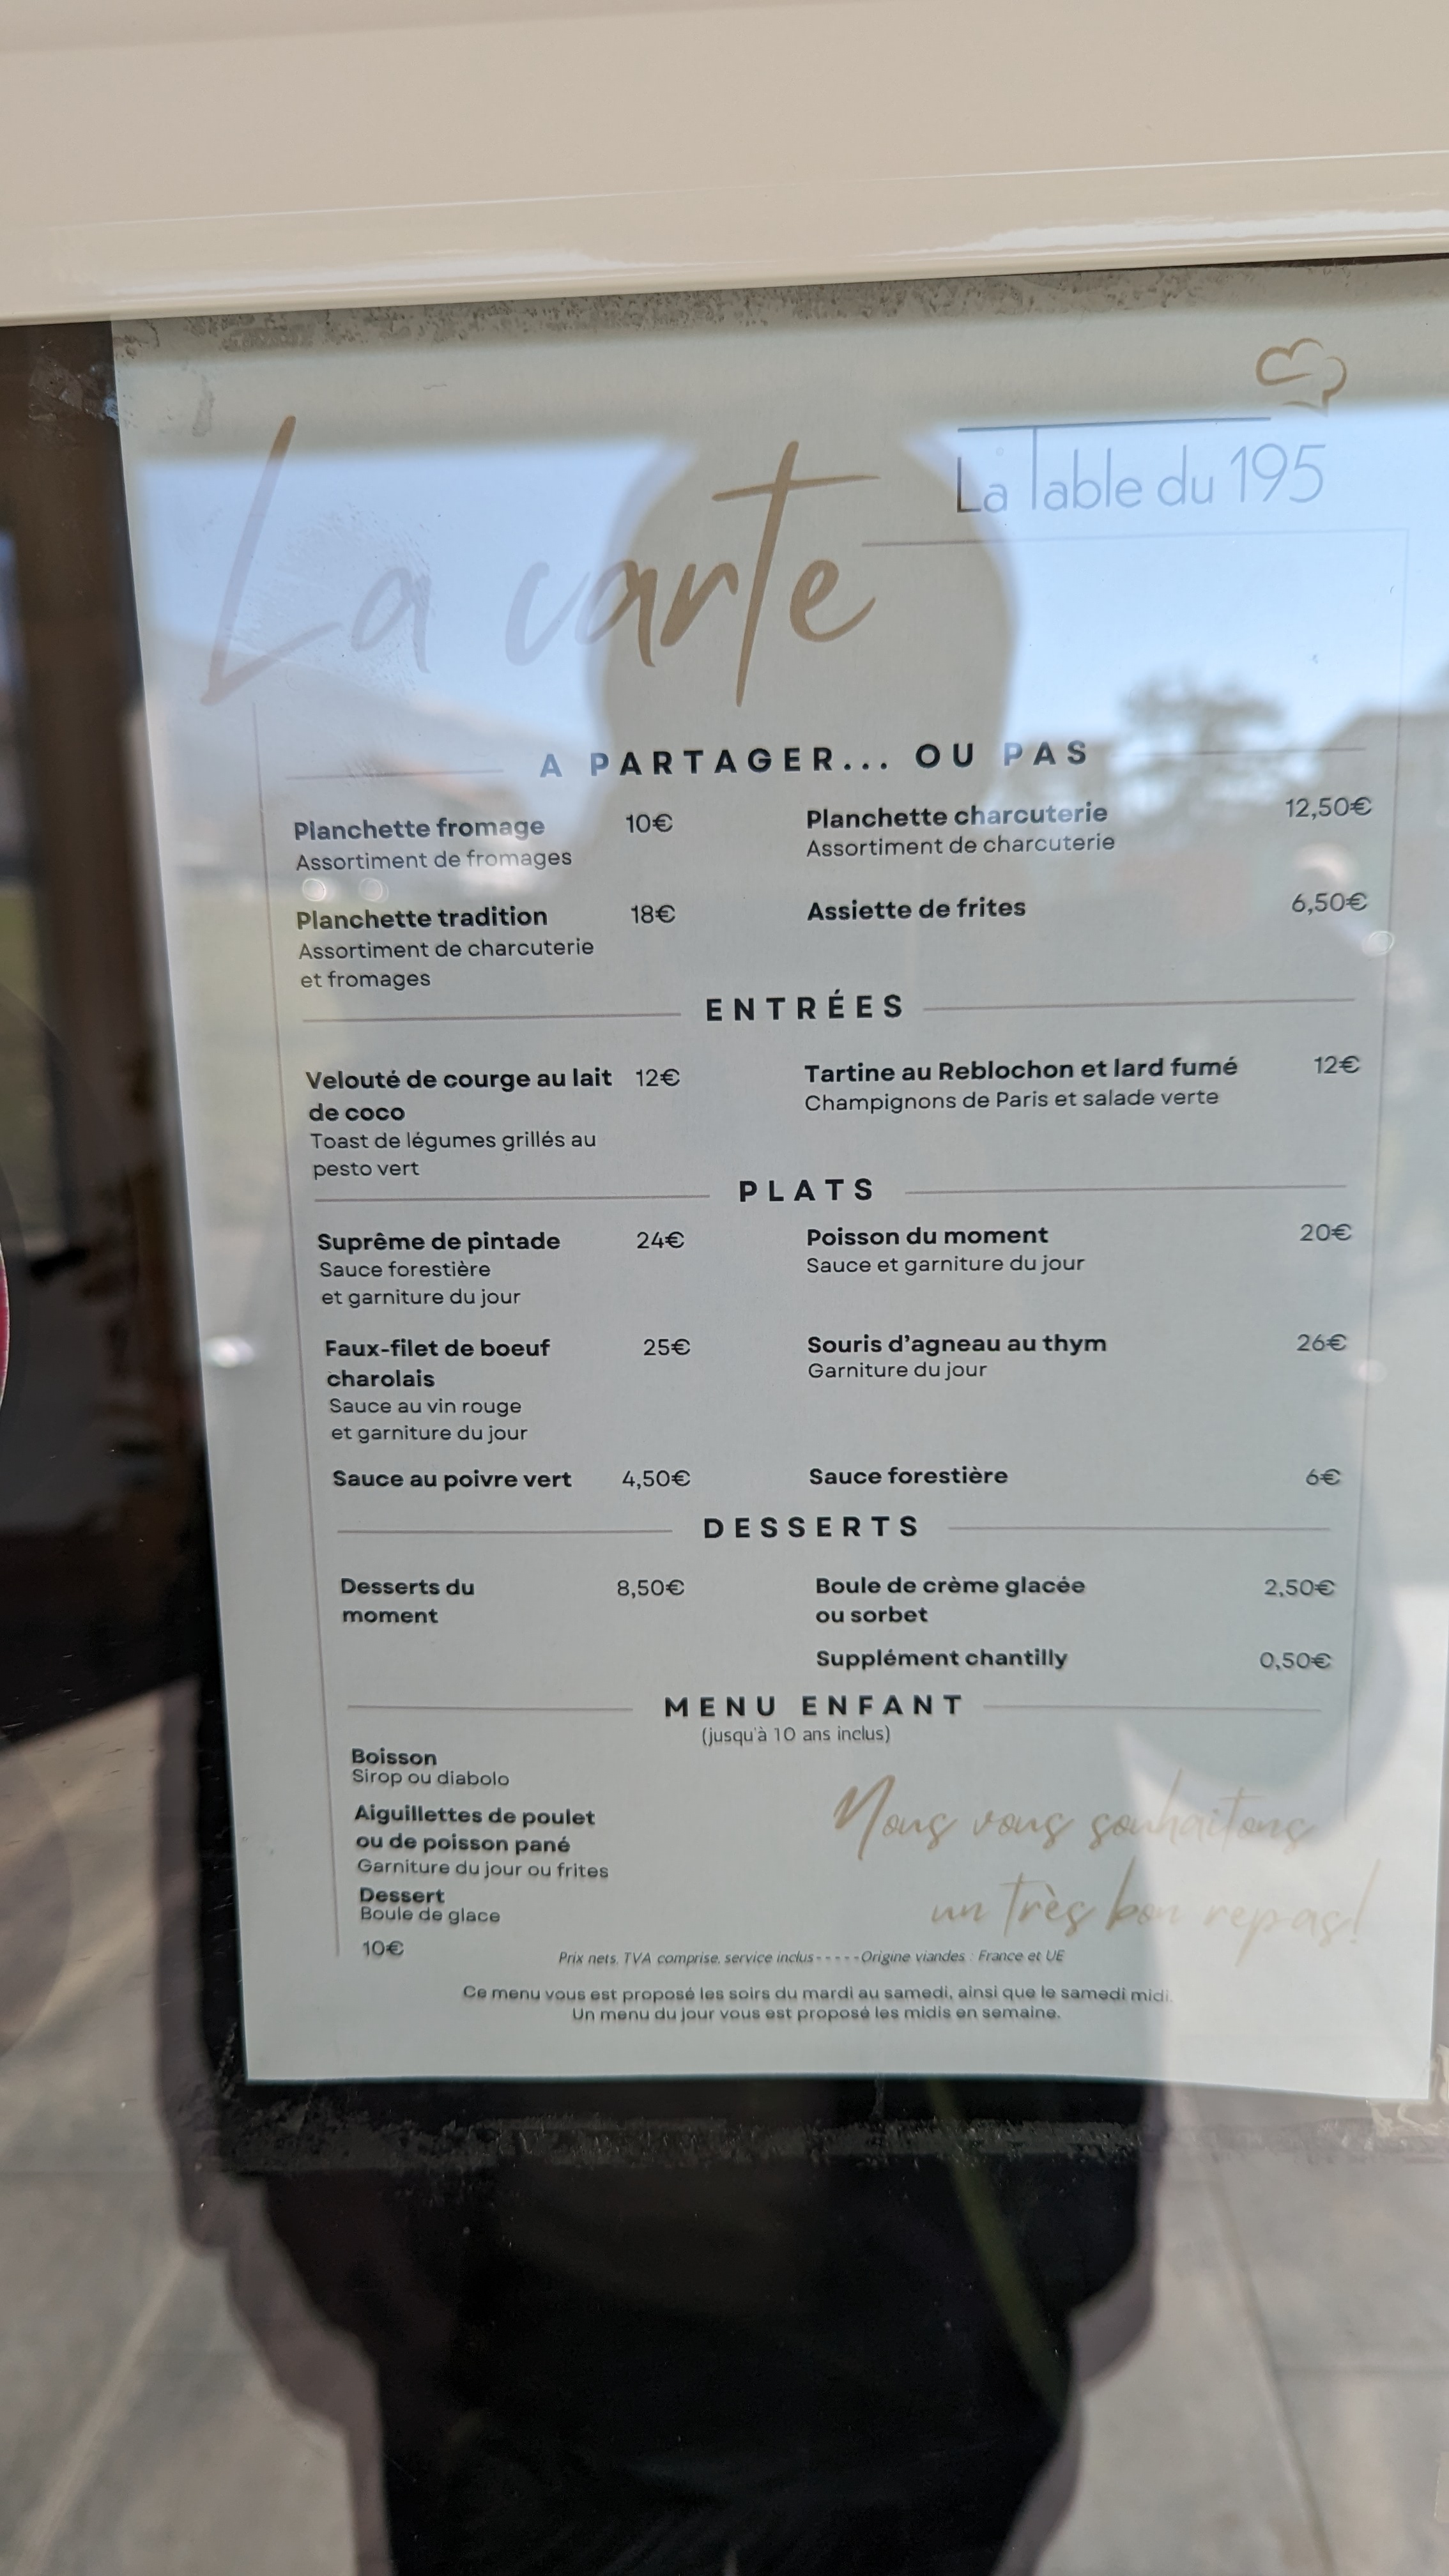 La Table du 195
La carte
A PARTAGER... OU PAS
Planchette fromage 10€
Assortiment de fromages
Planchette tradition 18€
Assortiment de charcuterie
et fromages
Planchette charcuterie 12,50€
Assortiment de charcuterie
Assiette de frites 6,50€
ENTRÉES
Velouté de courge au lait 12€
de coco
Toast de légumes grillés au
pesto vert
Tartine au Reblochon et lard fumé 12€
Champignons de Paris et salade verte
PLATS
Suprême de pintade 24€
Sauce forestière
et garniture du jour
Faux-filet de boeuf 25€
charolais
Sauce au vin rouge
et garniture du jour
Sauce au poivre vert 4,50€
Poisson du moment 20€
Sauce et garniture du jour
Souris d'agneau au thym 26€
Garniture du jour
Sauce forestière 6€
DESSERTS
Desserts du 8,50€
moment
Boule de crème glacée 2,50€
ou sorbet
Supplément chantilly 0,50€
MENU ENFANT
(jusqu'à 10 ans inclus)
Boisson
Sirop ou diabolo
Aiguillettes de poulet
ou de poisson pané
Garniture du jour ou frites
Dessert
Boule de glace
10€
Nous vous souhaitons
un très bon repas!
Prix nets, TVA comprise, service inclus - - - - - Origine viandes : France et UE
Ce menu vous est proposé les soirs du mardi au samedi, ainsi que le samedi midi.
Un menu du jour vous est proposé les midis en semaine.